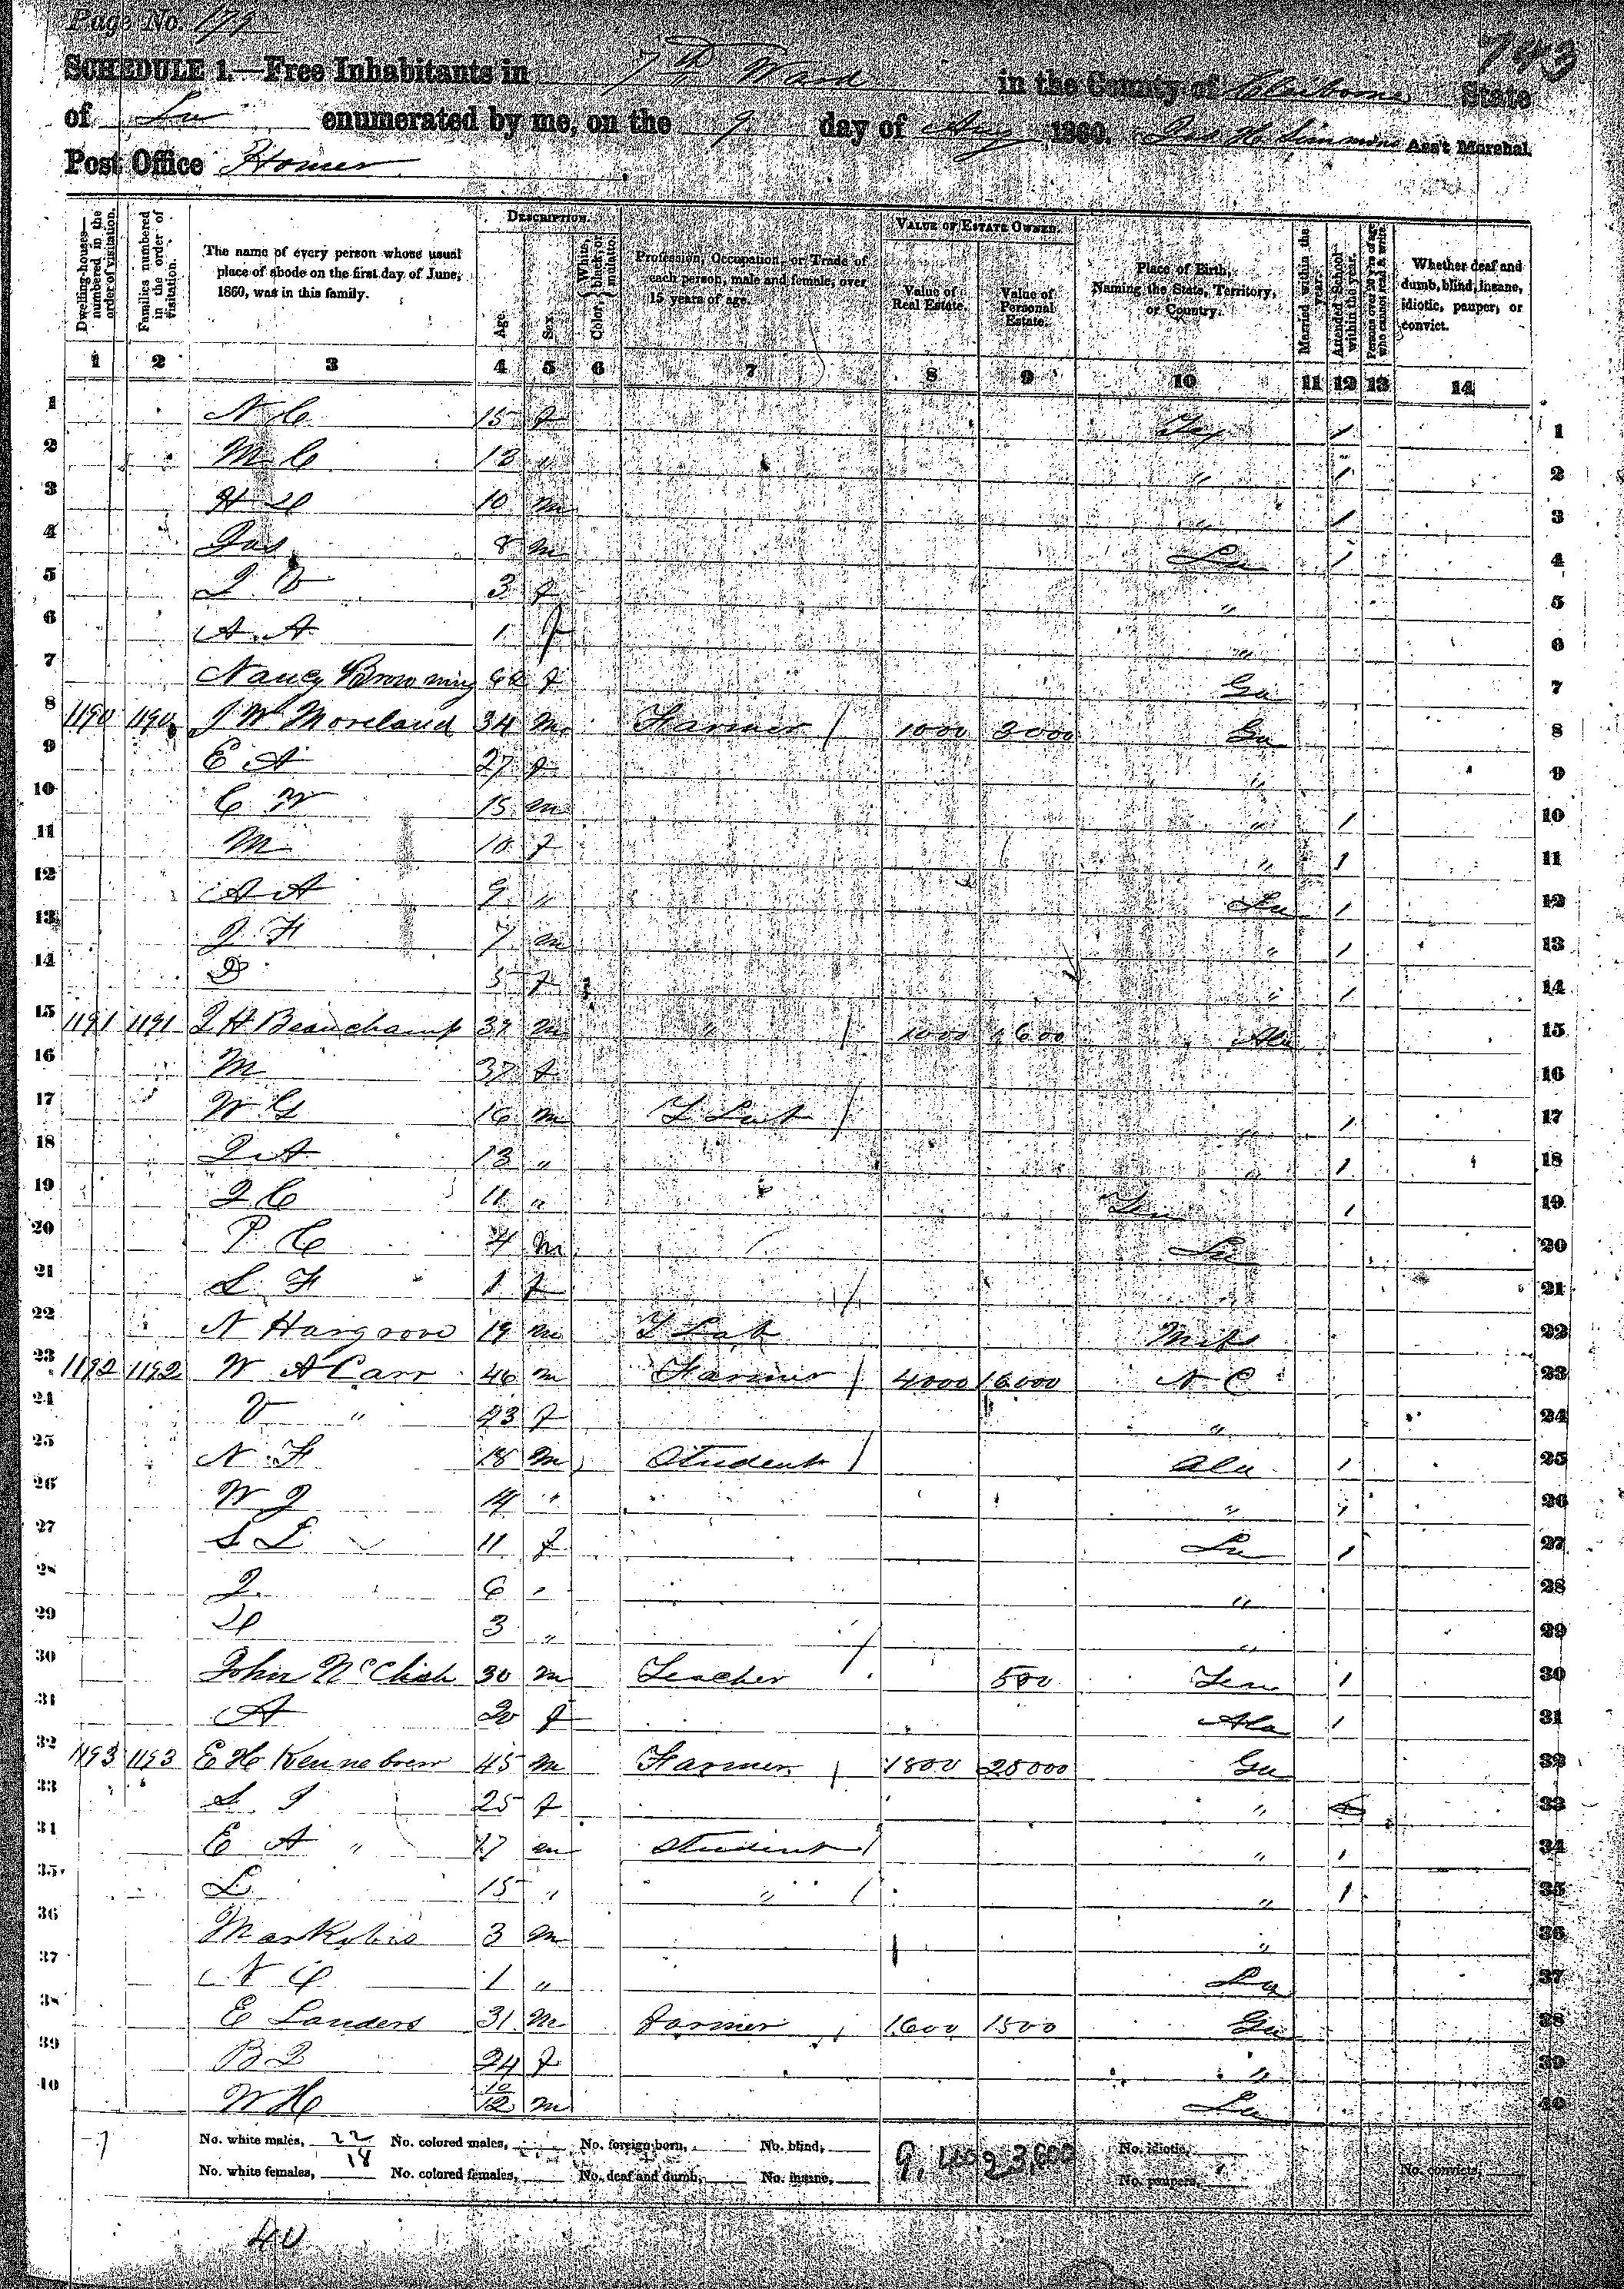 Page No. 171
743
SCHEDULE 1.—Free Inhabitants in 7th Ward in the County of Claiborne State
of La enumerated by me, on the 9 day of Aug 1860. Simmons Ass't Marshal.
Post Office Homer
Dwelling-houses—numbered in the order of visitation.
Families numbered in the order of visitation.
The name of every person whose usual place of abode on the first day of June, 1860, was in this family.
DESCRIPTION.
Age.
Sex.
Color, White, black, or mulatto.
Profession, Occupation, or Trade of each person, male and female, over 15 years of age.
VALUE OF ESTATE OWNED.
Value of Real Estate.
Value of Personal Estate.
Place of Birth, Naming the State, Territory, or Country.
Married within the year.
Attended School within the year.
Persons over 20 y'rs of age who cannot read & write.
Whether deaf and dumb, blind, insane, idiotic, pauper, or convict.
1 2 3 4 5 6 7 8 9 10 11 12 13 14
1 N C 15 f Tex / 1
2 M C 13 " " / 2
3 H 10 m " / 3
4 Jas 8 m La / 4
5 J V 3 f " 5
6 A. A 1 f " 6
7 Nancy Browning f Ga 7
8 1190 1190 J W Moreland 34 M Farmer / 1000 3000 Ga 8
9 E A 27 f " 9
10 C W 15 m " / 10
11 M 10 f " / 11
12 A A 9 " La / 12
13 J F 7 m " / 13
14 D 5 f " / 14
15 1191 1191 J H Beauchamp 39 m " / 1000 Ala 15
16 M 37 f 16
17 W G 16 m / " / 17
18 J A 13 " " / 18
19 J C 11 " Ten / 19
20 P C 4 m La 20
21 L F 1 f / 21
22 N Hargrove 19 m F Lab Miss 22
23 1192 1192 W A Carr 46 m Farmer / 4000 16000 N C 23
24 V " 43 f " 24
25 N F 18 m Student / Ala / 25
26 W J 14 " " / 26
27 S E 11 f La / 27
28 J 6 " " 28
29 3 " / " 29
30 John 30 m Teacher 500 Ten / 30
31 A 20 f Ala / 31
32 1193 1193 E H Kennebrew 45 m Farmer / 1800 25000 Ga 32
33 S J 25 f " 33
34 E A " 17 m Student / " / 34
35 L 15 " " / " / 35
36 3 m " 36
37 N 1 " La 37
38 E Landers 31 m Farmer / 1600 1500 Ga 38
39 B J 24 f " 39
40 W H 10/12 m La 40
No. white males, 22 No. colored males, No. foreign born, No. blind, No. idiotic,
No. white females, 18 No. colored females, No. deaf and dumb, No. insane, No. paupers, No. convicts,
40